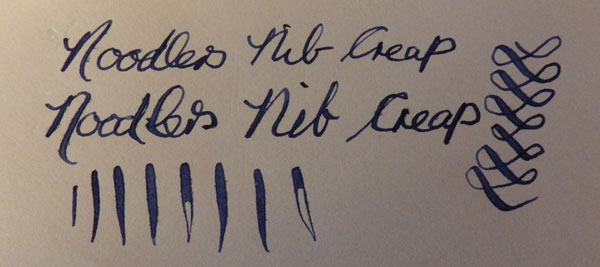 Noodlers Nib Creap
Noodlers Nib Creap